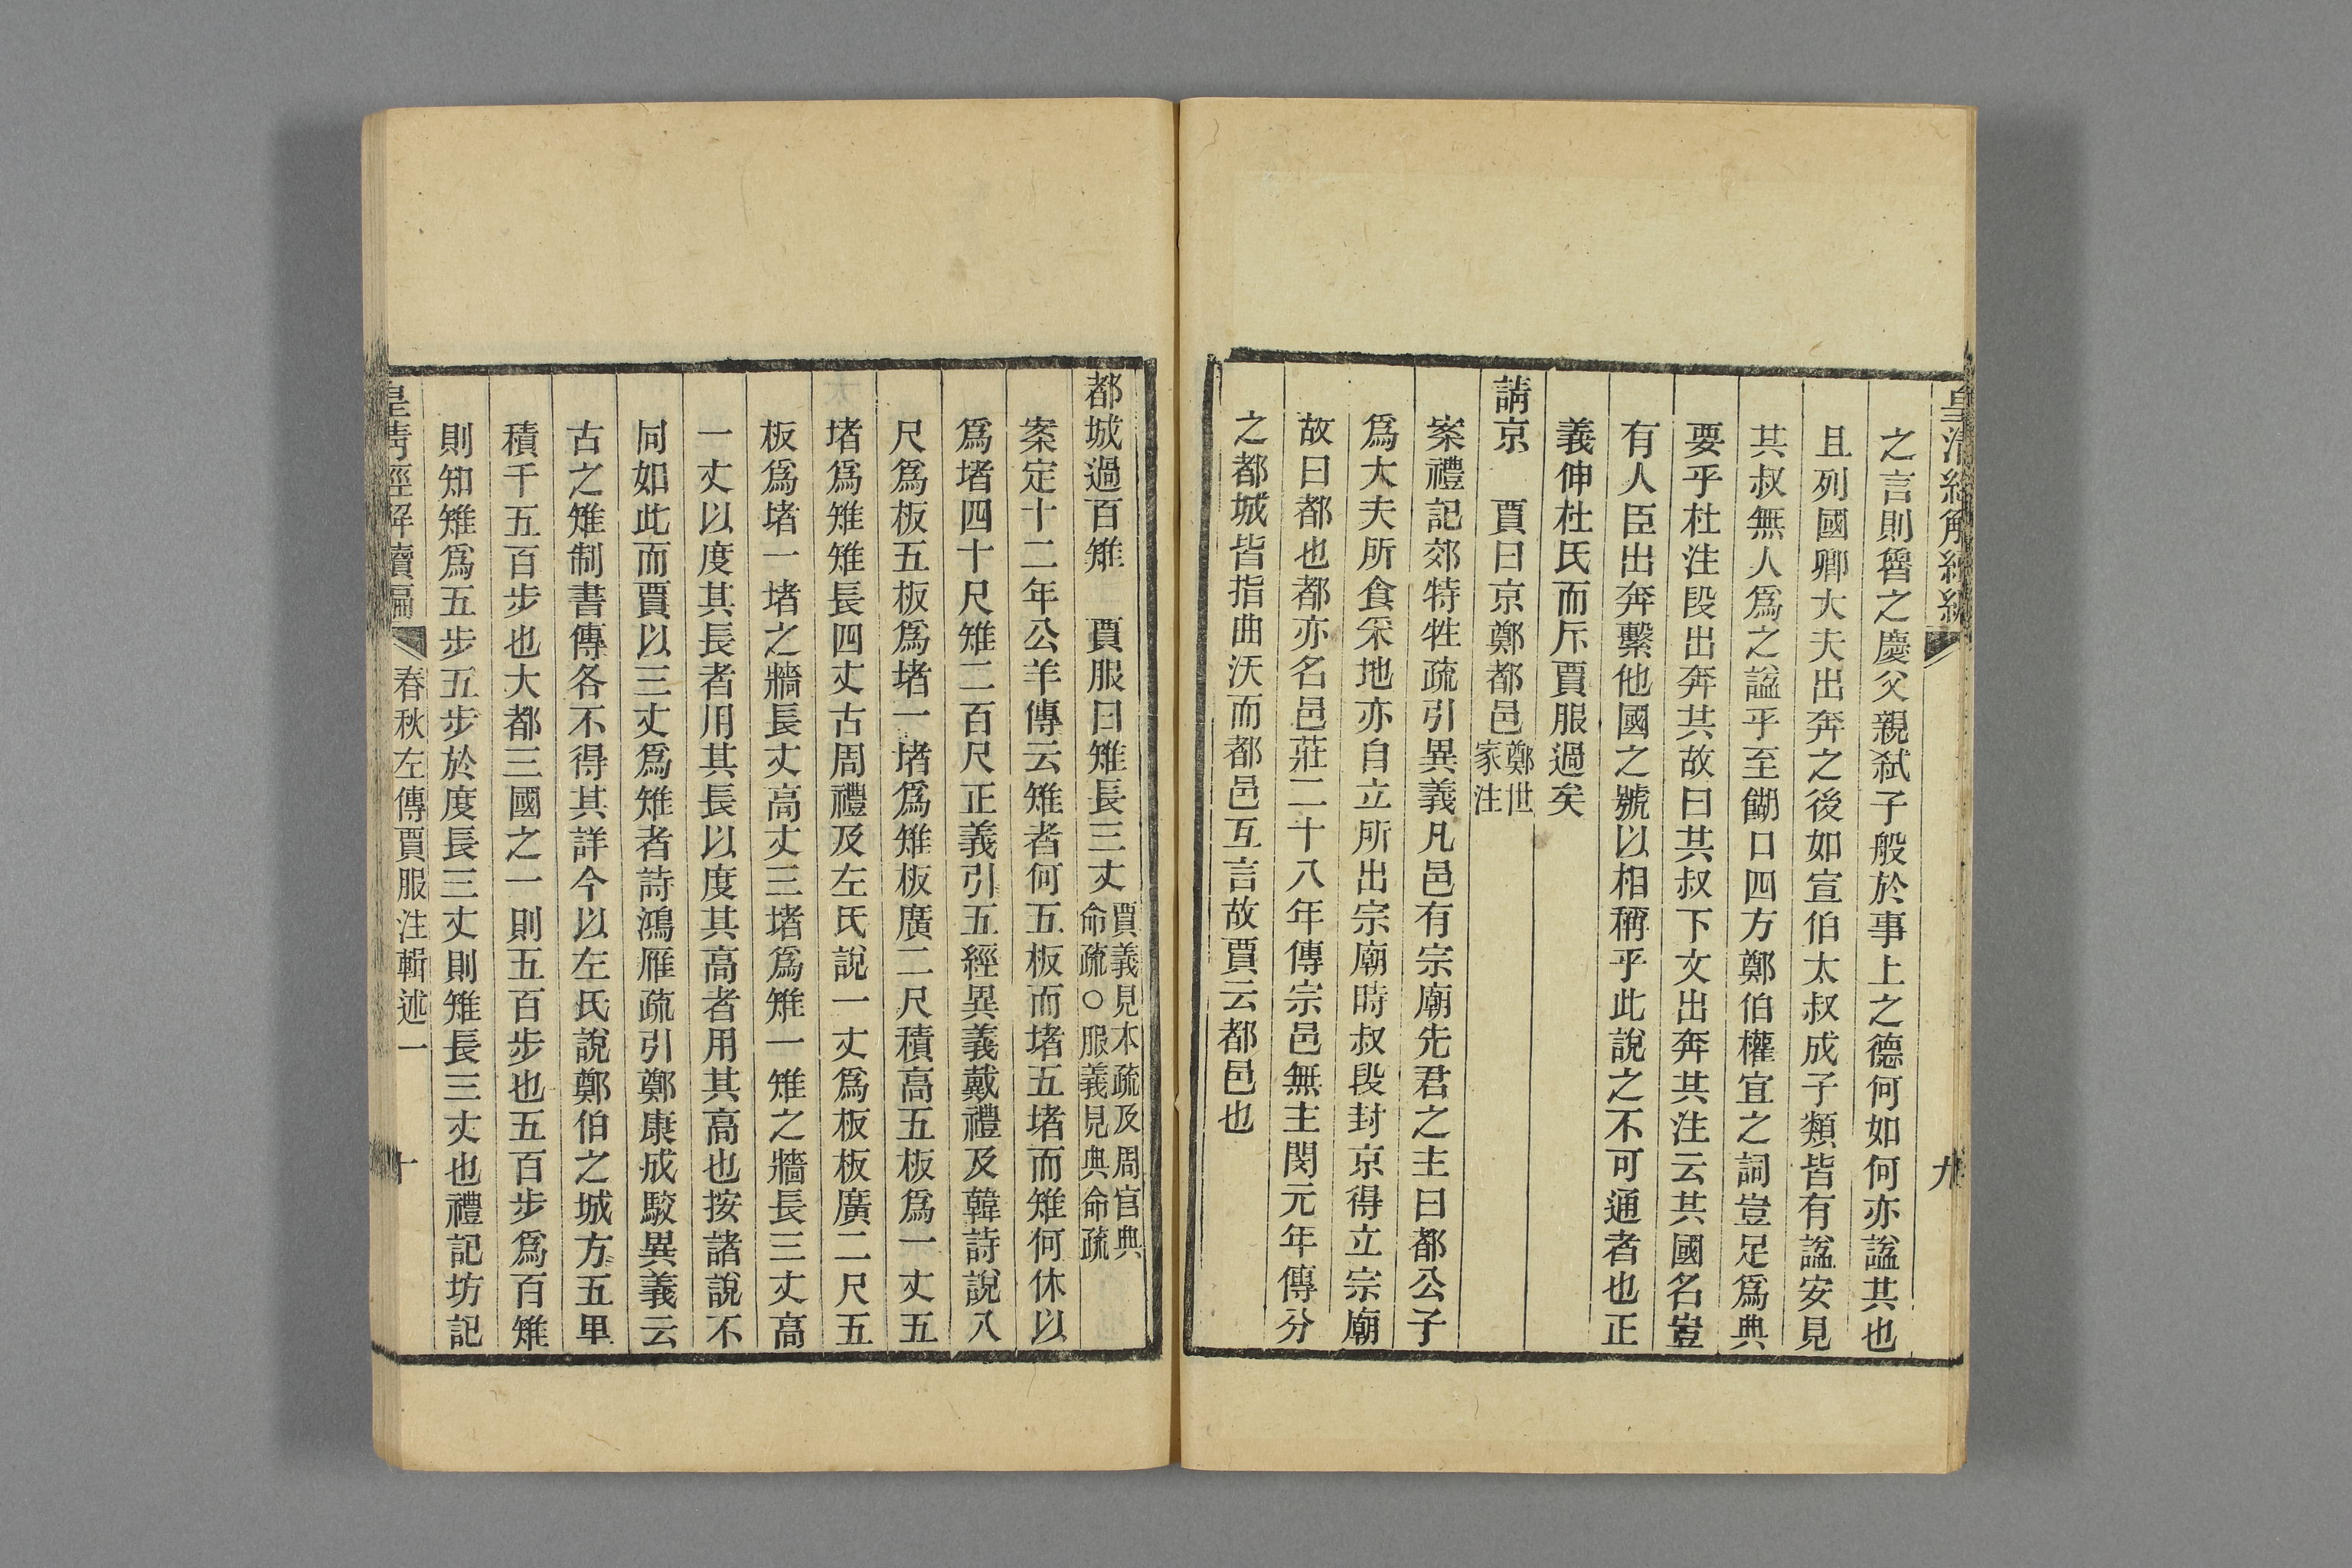 皇清經解續編
九
之言則魯之慶父親弑子般於事上之德何如何亦謚其也
且列國卿大夫出奔之後如宣伯太叔成子類皆有謚安見
其叔無人爲之謚乎至餬口四方鄭伯權宜之詞豈足爲典
要乎杜注段出奔共故曰共叔下文出奔共注云共國名豈
有人臣出奔繫他國之號以相稱乎此說之不可通者也正
義伸杜氏而斥賈服過矣
請京　賈曰京鄭都邑鄭世家注
案禮記郊特牲疏引異義凡邑有宗廟先君之主曰都公子
爲大夫所食采地亦自立所出宗廟時叔段封京得立宗廟
故曰都也都亦名邑莊二十八年傳宗邑無主閔元年傳分
之都城皆指曲沃而都邑互言故賈云都邑也
都城過百雉　賈服曰雉長三丈賈義見本疏及周官典命疏○服義見典命疏
案定十二年公羊傳云雉者何五板而堵五堵而雉何休以
爲堵四十尺雉二百尺正義引五經異義戴禮及韓詩說八
尺爲板五板爲堵一堵爲雉板廣二尺積高五板爲一丈五
堵爲雉雉長四丈古周禮及左氏說一丈爲板板廣二尺五
板爲堵一堵之牆長丈高丈三堵爲雉一雉之牆長三丈高
一丈以度其長者用其長以度其高者用其高也按諸說不
同如此而賈以三丈爲雉者詩鴻雁疏引鄭康成駮異義云
古之雉制書傳各不得其詳今以左氏說鄭伯之城方五里
積千五百步也大都三國之一則五百步也五百步爲百雉
則知雉爲五步五步於度長三丈則雉長三丈也禮記坊記
皇清經解續編
春秋左傳賈服注輯述一
十